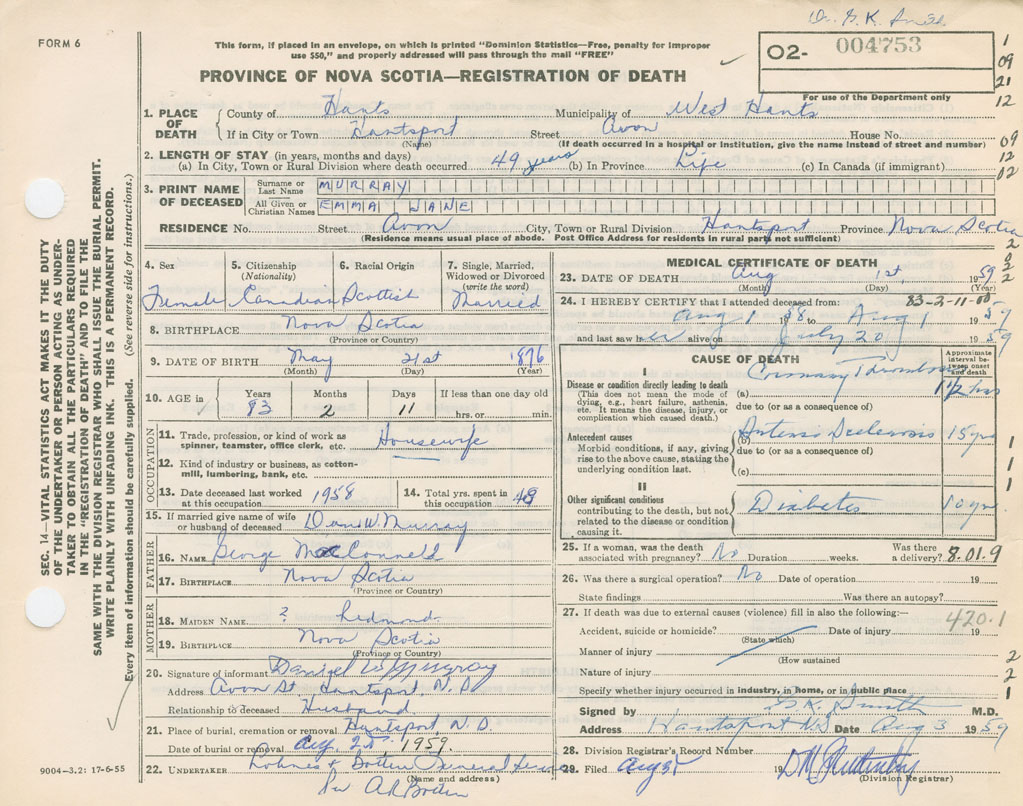 Dr. G. K. Smith
FORM 6
This form, if placed in an envelope, on which is printed "Dominion Statistics—Free, penalty for improper
use $50," and properly addressed will pass through the mail "FREE"
PROVINCE OF NOVA SCOTIA—REGISTRATION OF DEATH
02- 004753
For use of the Department only
1
09
21
12
1. PLACE OF DEATH
County of Hants Municipality of West Hants
If in City or Town Hantsport Street Avon House No.
(Name) (If death occurred in a hospital or institution, give the name instead of street and number)
09
12
02
2. LENGTH OF STAY (in years, months and days)
(a) In City, Town or Rural Division where death occurred 49 years (b) In Province Life (c) In Canada (if immigrant)
3. PRINT NAME OF DECEASED
Surname or Last Name MURRAY
All Given or Christian Names EMMA JANE
RESIDENCE No. Street Avon City, Town or Rural Division Hantsport Province Nova Scotia
(Residence means usual place of abode. Post Office Address for residents in rural parts not sufficient)
2
0
2
2
4. Sex Female
5. Citizenship (Nationality) Canadian
6. Racial Origin Scottish
7. Single, Married, Widowed or Divorced (write the word) Married
8. BIRTHPLACE Nova Scotia
(Province or Country)
9. DATE OF BIRTH May 21st 1876
(Month) (Day) (Year)
10. AGE in Years 83 Months 2 Days 11 If less than one day old
hrs. or min.
OCCUPATION
11. Trade, profession, or kind of work as
spinner, teamster, office clerk, etc. Housewife
12. Kind of industry or business, as cotton-
mill, lumbering, bank, etc.
13. Date deceased last worked
at this occupation 1958
14. Total yrs. spent in
this occupation 48
15. If married give name of wife
or husband of deceased Danl W. Murray
FATHER
16. NAME George MacConnell
17. BIRTHPLACE Nova Scotia
(Province or Country)
MOTHER
18. MAIDEN NAME ? Redmond
19. BIRTHPLACE Nova Scotia
(Province or Country)
20. Signature of informant Daniel W Murray
Address Avon St. Hantsport, N.S.
Relationship to deceased Husband
21. Place of burial, cremation or removal Hantsport N.S.
Date of burial or removal Aug. 2nd, 1959.
22. UNDERTAKER Funeral
(Name and address)
Per
MEDICAL CERTIFICATE OF DEATH
23. DATE OF DEATH Aug 1st 1959
(Month) (Day) (Year)
83-2-11-00
24. I HEREBY CERTIFY that I attended deceased from:
Aug 1 1958 to Aug 1 1959
and last saw her alive on July 20 1959
CAUSE OF DEATH
Approximate interval between onset and death
I
Disease or condition directly leading to death
(This does not mean the mode of
dying, e.g., heart failure, asthenia,
etc. It means the disease, injury, or
complication which caused death.)
(a) Coronary Thrombosis 1 1/2 hrs
due to (or as a consequence of)
Antecedent causes
Morbid conditions, if any, giving
rise to the above cause, stating the
underlying condition last.
(b) Arterio Sclerosis 15 yrs
due to (or as a consequence of)
(c)
1
1
1
1
II
Other significant conditions
contributing to the death, but not
related to the disease or condition
causing it.
Diabetes 10 yrs.
25. If a woman, was the death
associated with pregnancy? No Duration weeks. Was there
a delivery? 8.01.9
26. Was there a surgical operation? No Date of operation 19
State findings Was there an autopsy?
27. If death was due to external causes (violence) fill in also the following:—
420.1
Accident, suicide or homicide? Date of injury 19
(State which)
Manner of injury
(How sustained
Nature of injury
Specify whether injury occurred in industry, in home, or in public place
2
2
1
Signed by G. K. Smith M.D.
Address Hantsport N.S. Date Aug 3 1959
28. Division Registrar's Record Number
29. Filed Aug 5 19
(Division Registrar)
SEC. 14—VITAL STATISTICS ACT MAKES IT THE DUTY
OF THE UNDERTAKER OR PERSON ACTING AS UNDER-
TAKER TO OBTAIN ALL THE PARTICULARS REQUIRED
IN THE "REGISTRATION OF DEATH" AND TO FILE THE
SAME WITH THE DIVISION REGISTRAR WHO SHALL ISSUE THE BURIAL PERMIT.
WRITE PLAINLY WITH UNFADING INK. THIS IS A PERMANENT RECORD.
Every item of information should be carefully supplied. (See reverse side for instructions.)
9004-3.2: 17-6-55